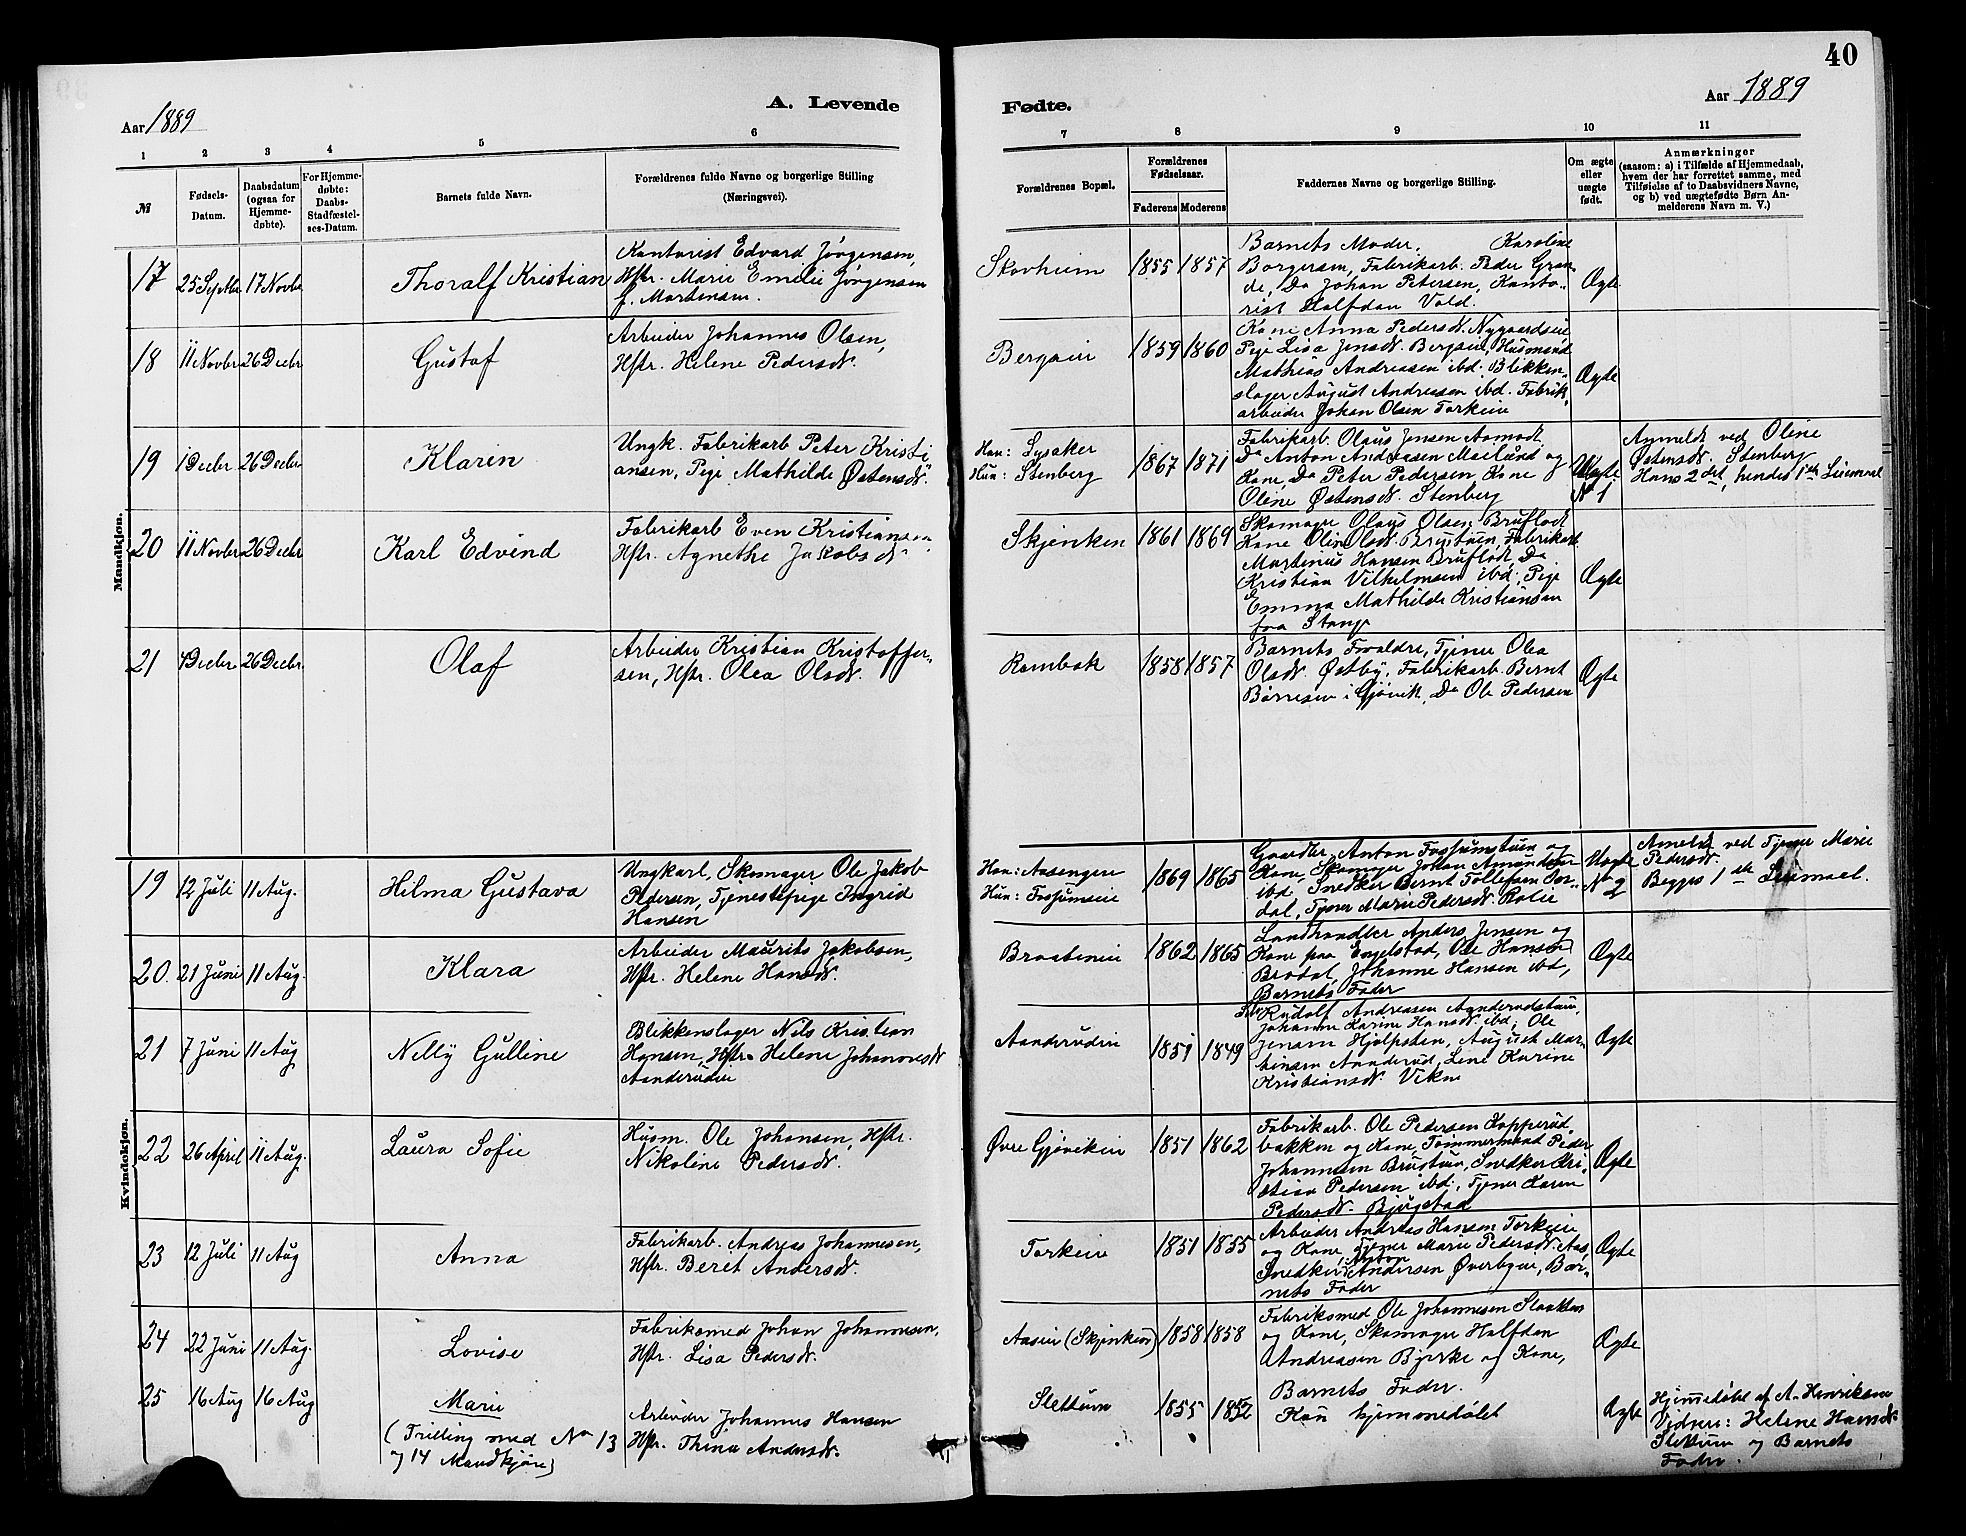 40
Aar 1889
A. Levende
Fødte.
Aar 1889
1 2 3 4 5 6 7 8 9 10 11
№
Fødsels-
Datum.
Daabsdatum
(ogsaa for
Hjemme-
døbte).
For Hjemme-
døbte:
Daabs-
Stadfæstel-
ses-Datum.
Barnets fulde Navn.
Forældrenes fulde Navne og borgerlige Stilling
(Næringsvei).
Forældrenes Bopæl.
Forældrenes
Fødselsaar.
Faderens Moderens
Faddernes Navne og borgerlige Stilling.
Om ægte
eller
uægte
født.
Anmærkninger
(saasom: a) i Tilfælde af Hjemmedaab,
hvem der har forrettet samme, med
Tilføielse af to Daabsvidners Navne,
og b) ved uægtefødte Børn An-
melderens Navn m. V.)
Mandkjøn.
17
25 Septbr 17 Novbr
Thoralf Kristian
Kontorist Edvard Jørgensen,
Hstr. Marie Emilie Jørgensen
f. Martensen.
Skovheim
1855 1857
Barnets Moder, Karoline
Borgersen, Fabrikarb. Peder Gran-
de, Do Johan Petersen, Konto-
rist Halfdan Vold.
Ægte
18
11 Novbr 26 Decbr
Gustaf
Arbeider Johannes Olsen,
Hstr. Helene Pedersdr.
Bergeie
1859 1860
Kone Anna Pedersdr. Nygaardseie
Pige Lisa Jensdr. Bergeie, Husmand
Mathias Andreasen ibd. Blikken-
slager August Andreasen ibd. Fabrik-
arbeider Johan Olsen Torkeie
Ægte
19
1 Decbr. 26 Decbr
Klarin
Ungk. Fabrikarb Peter Kristi
ansen, Pige Mathilde Østensdr.
Han: Lysaker
Hun: Stenberg
1867 1871
Fabrikarb. Olaus Jensen Aamodt
Do Anton Andreasen Mælund og
Kone, Do Peter Pedersen, Kone
Oline Østensdr. Stenberg
Uægte
No 1
Anmeldt ved Oline
Østensdr. Stenberg
Hans 2det, hendes 1ste Leiermaal
20
11 Novbr 26 Decbr
Karl Edvind
Fabrikarb Even Kristiansen
Hstr. Agnethe Jakobsdr
Skjenken
1861 1869
Skomager Olaus Olsen Bruflodt
Kone Oline Olsdr. Brustuen, Fabrikarb
Martinius Hansen Bruflodt, Do
Kristian Vilhelmsen ibd; Pige
Emma Mathilde Kristiansen
fra Stange
Ægte
21
4 Decbr 26 Decbr.
Olaf
Arbeider Kristian Kristoffer-
sen, Hstr. Olea Olsdr.
Rambek
1858 1857
Barnets Forældre, Tjener Olea
Olsdr. Østby, Fabrikarb. Bernt
Børresen i Gjøvik, Do Ole Pedersen
Ægte
Kvindekjøn.
19
12 Juli 11 Aug.
Hilma Gustava
Ungkarl, Skomager Ole Jakob
Pedersen, Tjenestepige Ingrid
Hansen
Han: Aasengere
Hun: Fossumeie
1869 1865
Gaardbr. Anton Fossumstuen og
Kone, Skomager Johan Amundsen
ibd Snedker Bernt Tollefsen
dal, Tjener Marie Pedersdr.
Uægte
No 2
Anmeldt ved Tjener Marie
Pedersdr.
Begges 1ste Leiermaal.
20.
21 Juni 11 Aug.
Klara
Arbeider Maurits Jakobsen,
Hstr. Helene Hansdr.
Braateneie
1862 1865
Landhandler Anders Jensen og
Kone paa Engelstad, Ole Hansen
Brodal, Johanne Hansen ibd,
Barnets Fader
Ægte
21
7 Juni 11 Aug
Nelly Gulline
Blikkenslager Nils Kristian
Hansen, Hstr. Helene Johannesdr
Aanderudeie
Aanderudeie
1851 1849
Rudolf Andreasen Aanderudstuen,
Johanne Karine Hansdr. ibd, Ole
Jensen Hjelpsten, August Mar-
tinsen Aanderud, Lene Karine
Kristiansdr. Vikne
Ægte
22
26 April 11 Aug.
Laura Sofie
Husm. Ole Johansen, Hstr.
Nikoline Pedersdr.
Øvre Gjøvikeie
1851 1862
Fabrikarb. Ole Pedersen Kopperud,
bakken og Kone, Tømmermand Peder
Johannesen Brustuen, Snedker Kri-
stian Pedersen ibd., Tjener Karen
Pedersdr. Bjugstad
Ægte
23
12 Juli 11 Aug
Anna
Fabrikarb. Andreas Johannesen,
Hstr. Beret Andersdr.
Torkeie
1851 1855
Arbeider Andreas Hansen Torkeie
og Kone, Tjener Marie Pedersdr. Aas,
Snedker Anton Andersen Øverbyeie, Bar-
nets Fader
Ægte
24
22 Juni 11 Aug.
Lovise
Fabriksmed Johan Johannesen,
Hstr. Lisa Pedersdr.
Aaseie (Skjenken)
1858 1858
Fabriksmed Ole Johannesen Slaatten
og Kone, Skomager Halfdan
Andreasen Bjerke og Kone,
Barnets Fader.
Ægte
25
16 Aug 16 Aug
Marie
(Trilling med No 13
og 14 Mandkjøn)
Arbeider Johannes Hansen
Hstr. Thina Andersdr.
Slettum
1855 1852
Kun hjemmedøbt
Ægte
Hjemmedøbt af A. Henriksen
Vidner: Helene Hansdr
Slettum og Barnets
Fader.